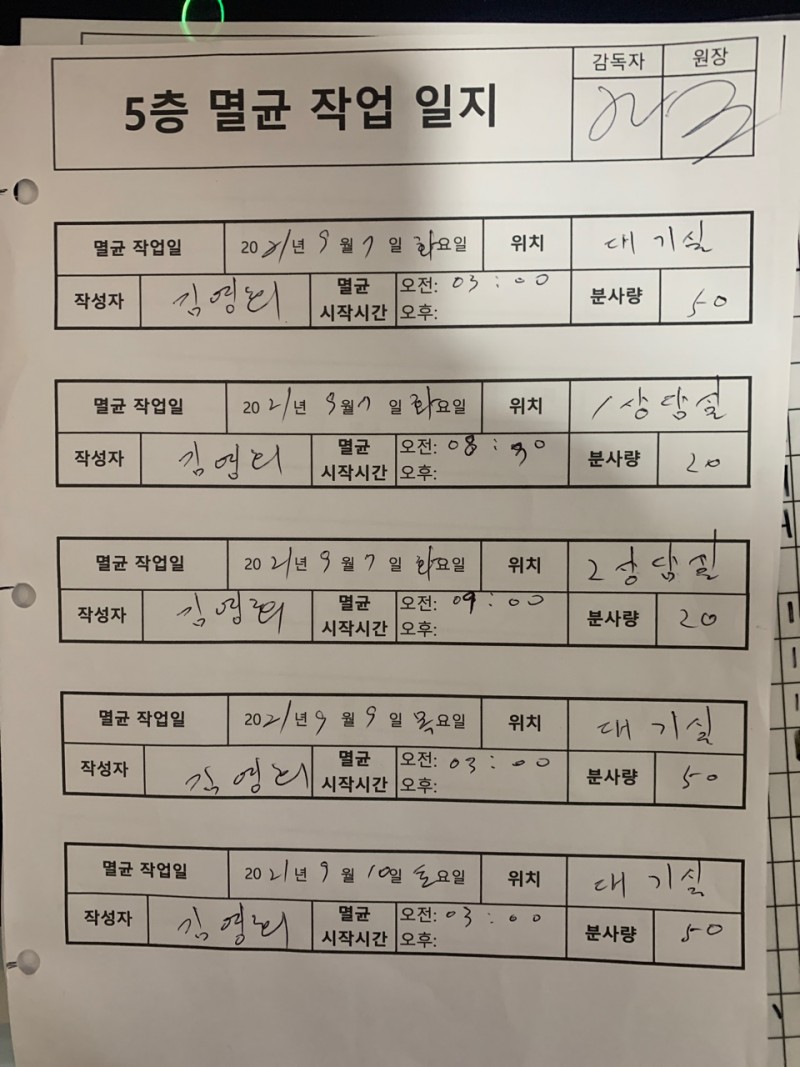 감독자 원장
5층 멸균 작업 일지
멸균 작업일 2021년 9월 7일 화요일 위치 대기실
작성자 김영희 멸균 시작시간 오전: 03:00 분사량 50
오후:
멸균 작업일 2021년 9월 7일 화요일 위치 1상담실
작성자 김영희 멸균 시작시간 오전: 08:30 분사량 20
오후:
멸균 작업일 2021년 9월 7일 화요일 위치 2상담실
작성자 김영희 멸균 시작시간 오전: 09:00 분사량 20
오후:
멸균 작업일 2021년 9월 9일 목요일 위치 대기실
작성자 김영희 멸균 시작시간 오전: 03:00 분사량 50
오후:
멸균 작업일 2021년 9월 10일 토요일 위치 대기실
작성자 김영희 멸균 시작시간 오전: 03:00 분사량 50
오후: